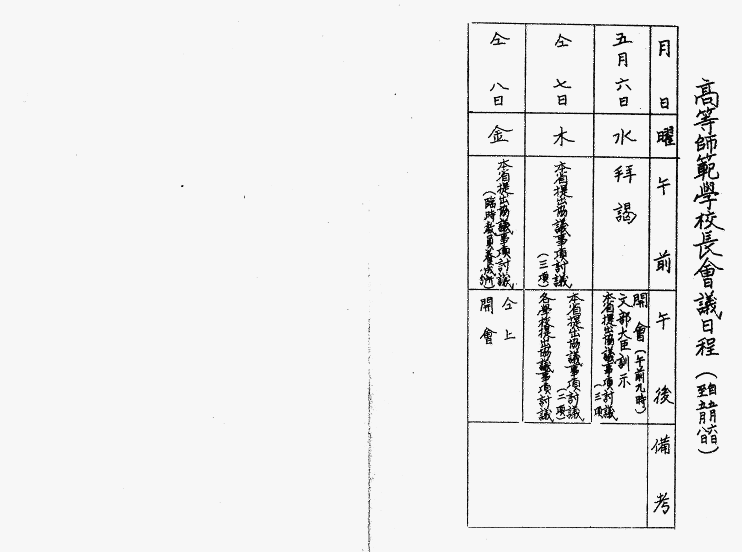 高等師範學校長會議日程(自五月六日至五月八日)
月日
曜
午前
午後
備考
五月六日
水
拜謁
開會(午前九時)
文部大臣訓示
本省提出協議事項討議(三項)
仝七日
木
本省提出協議事項討議(三項)
本省提出協議事項討議(二項)
各學校提出協議事項討議
仝八日
金
本省提出協議事項討議
(臨時教員養成所)
仝上
閉會